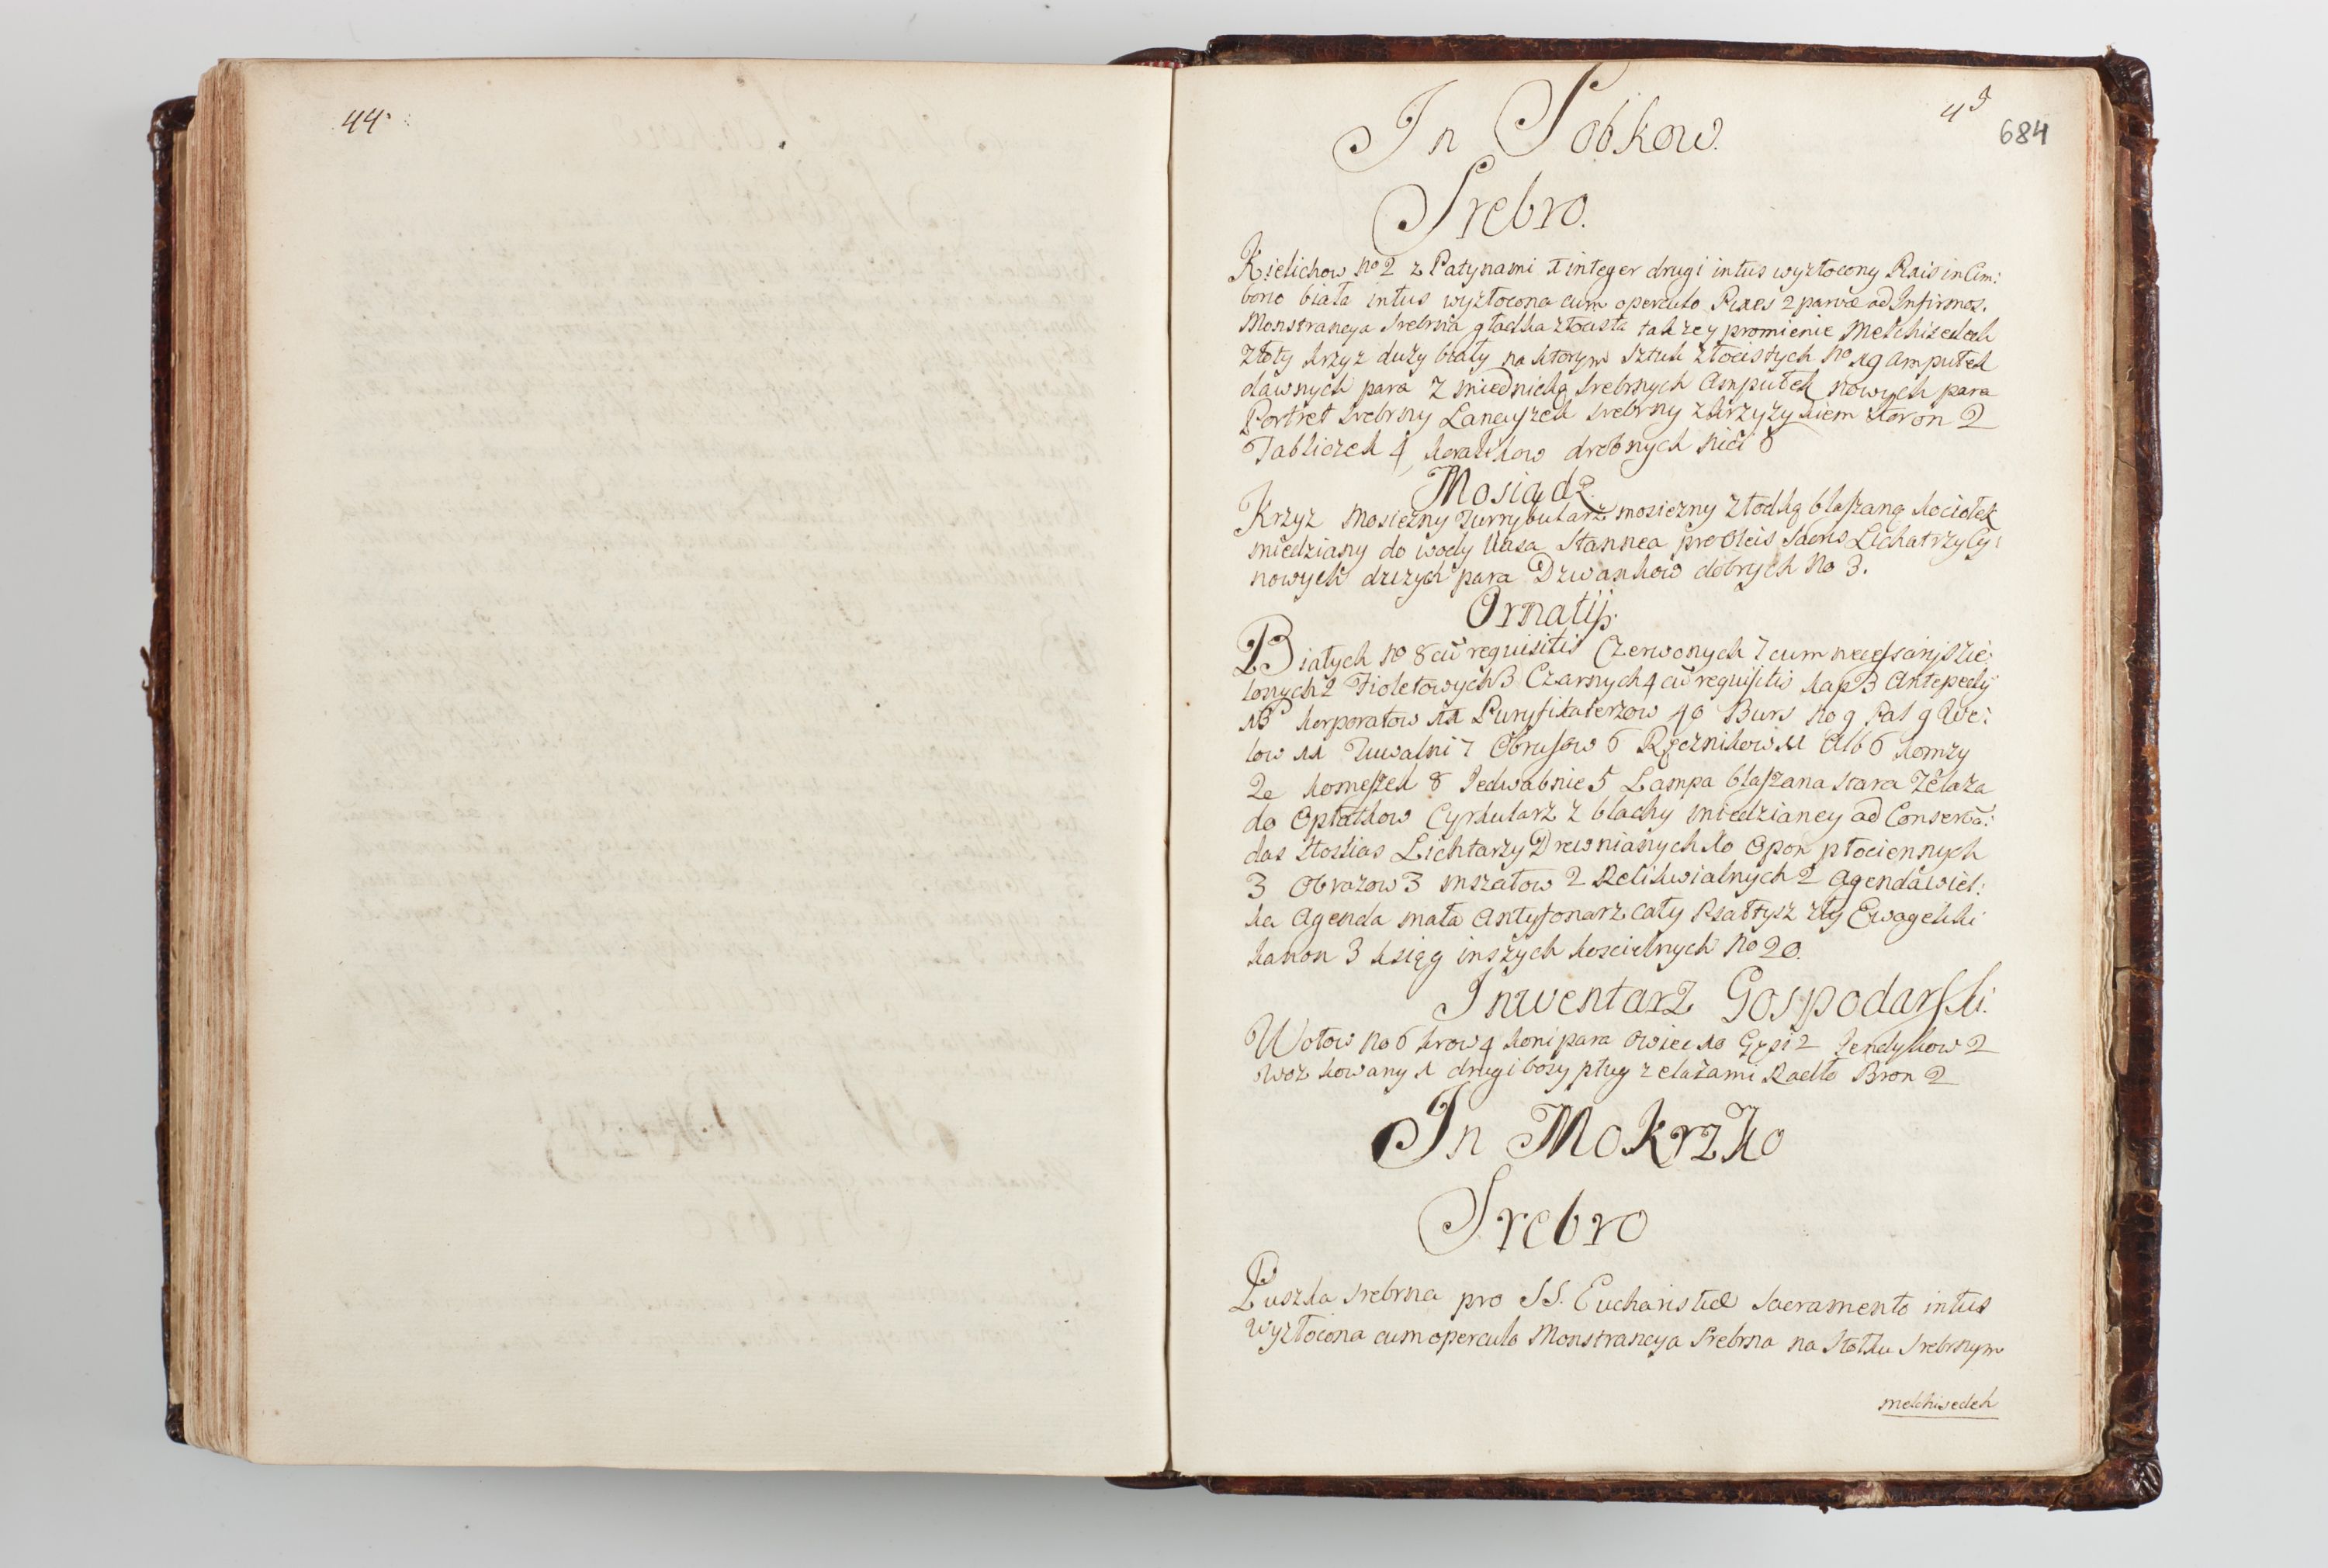 44
45
684
In Sobkow.
Srebro.
Kielichow No 2 z Patynami 1 integer drugi intus wyzłocony Pxis in Cim:
borio biała intus wyzłocona cum operculo Pixes 2 parvæ ad Infirmos.
Monstrancya srebrna gładka złocista także y promienie Melchisedech
złoty krzyz duży biały na ktorym sztuk złocistych No 19 ampułek
dawnych para z miednicką srebrnych Ampułek nowych para
Portret srebrny Lancyszek srebrny z krzyzykiem koron 2
Tabliczek 4 koralikow drobnych nici 8
Mosiądz.
Krzyz mosiezny Turrybularz mosiezny z łodką blaszaną kociołek
miedziany do wody Vasa Stannea pro Oleis Sacris Lichatrzy Cy:
nowych dużych para Dzwonkow dobrych No 3.
Ornatij.
Białych No 8 cu requisitis Czerwonych 7 cum necessarijs zie:
lonych 2 Fioletowych 3 Czarnych 4 cu requisitis kap 3 Antepedy
13 korporałow 11 Puryfikaterzow 40 Burs No 9 Pal 9 We:
low 11 Tuwalni 7 Obrusow 6 Ręcznikow 11 Alb 6 komzy
2e komeszek 8 Jedwabnie 5 Lampa blaszana stara Żelaza
do Opłatkow Cyrkularz z blachy miedzianey ad Conserva:
das Hostias Lichtarzy Drewnianych 10 Opon płociennych
3 Obrazow 3 mszałow 2 Relikwialnych 2 Agenda wiel:
ka Agenda mała Antyfonarz cały Psałtysz zły Ewageliki
kanon 3 ksiąg inszych koscielnych No 20.
Inwentarz Gospodarski.
Wołow No 6 krow 4 koni para owiec 10 Gęsi 2 Jendykow 2
woz kowany 1 drugi bosy pług z elazami Radło Bron 2
In Mokrzko
Srebro
Puszka srebrna pro SS. Eucharistiæ Sacramento intus
wyzłocona cum operculo Monstrancya srebrna na stołku srebrnym
melchisedek